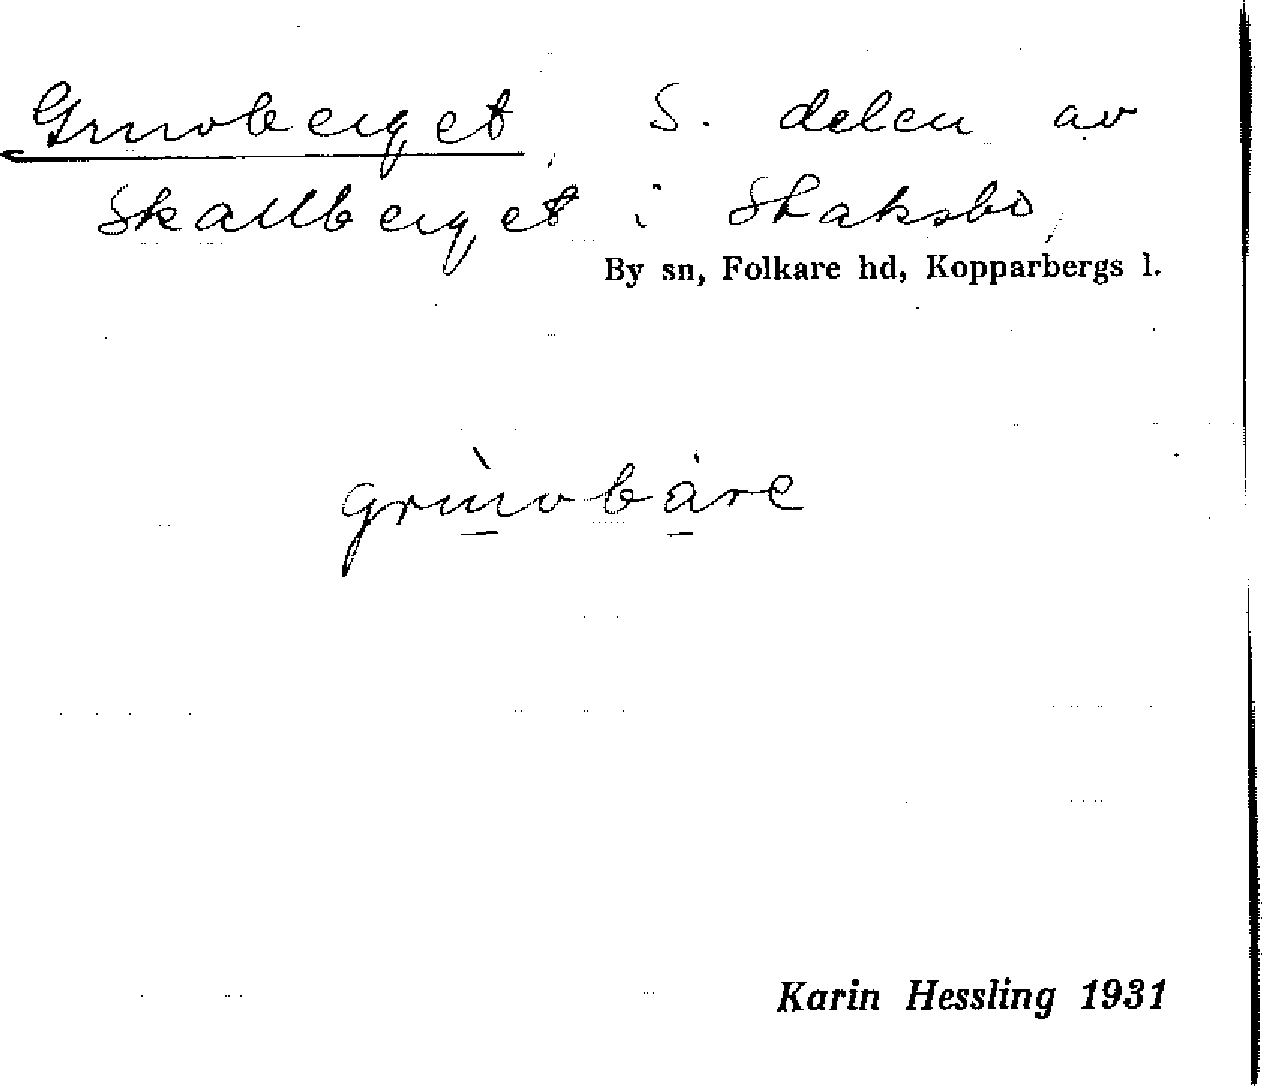 Gruvberget, S. delen av
Skallberget i Skaksbo,
By sn, Folkare hd, Kopparbergs l.
grùvbàre
Karin Hessling 1931